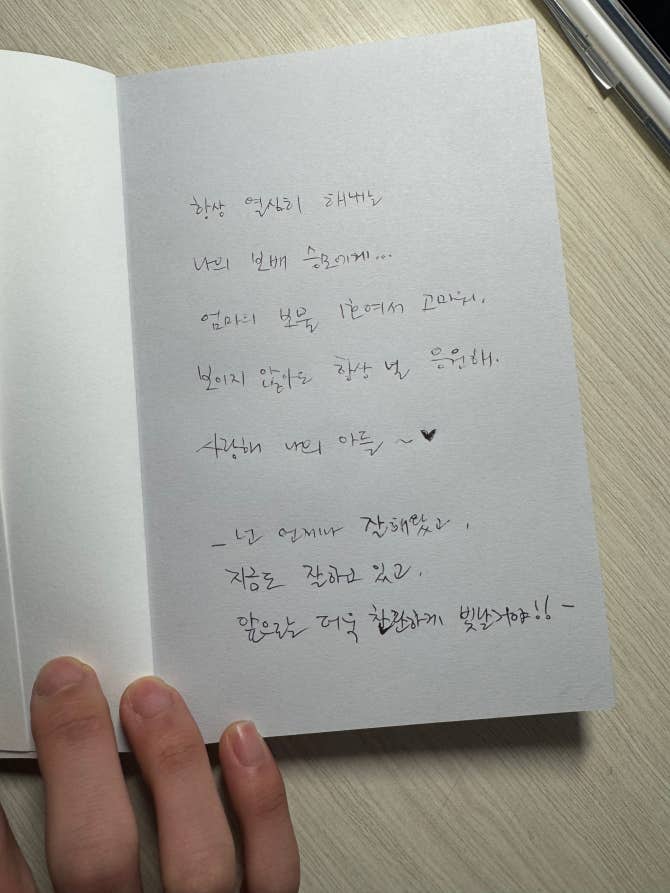 항상 열심히 해내는
나의 보배 승모에게...
엄마의 보물 1호여서 고마워.
보이지 않아도 항상 널 응원해.
사랑해 나의 아들 ~ ♥
_ 넌 언제나 잘해왔고,
지금도 잘하고 있고,
앞으로는 더욱 찬란하게 빛날거야!! -